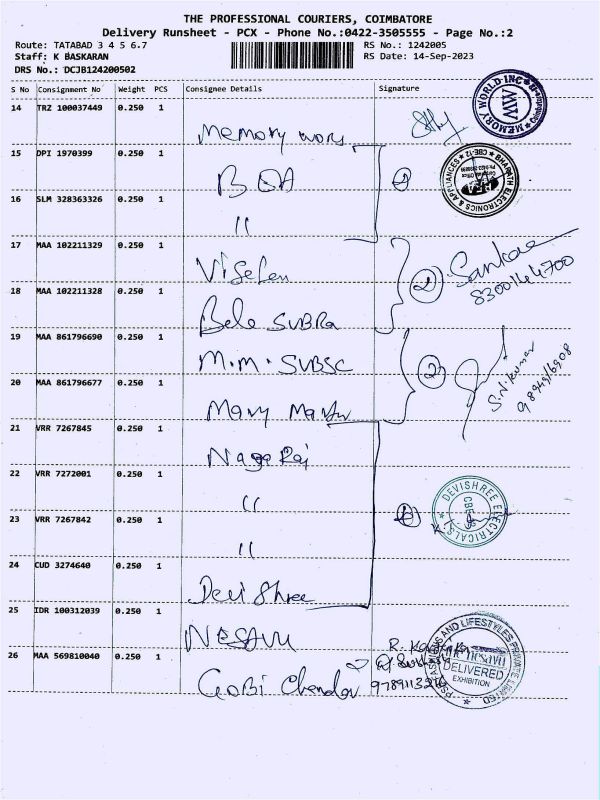 THE PROFESSIONAL COURIERS, COIMBATORE
Delivery Runsheet - PCX - Phone No.:0422-3505555 - Page No.:2
Route: TATABAD 3 4 5 6.7
RS No.: 1242005
Staff: K BASKARAN
RS Date: 14-Sep-2023
DRS No.: DCJB124200502
S No Consignment No Weight PCS Consignee Details Signature
14 TRZ 100037449 0.250 1
Memory
MEMORY WORLD INC
MW
15 DPI 1970399 0.250 1
BHARATH ELECTRONICS & APPLIANCES
CBE-12
16 SLM 328363326 0.250 1
"
17 MAA 102211329 0.250 1
2
Sankar
8300144700
18 MAA 102211328 0.250 1
Bala SUBRa
19 MAA 861796690 0.250 1
M.M. SUBSC
2
S.N.kumar
20 MAA 861796677 0.250 1
Mary
21 VRR 7267845 0.250 1
Naga Raj
22 VRR 7272001 0.250 1
"
DEVISHREE ELECTRICALS
23 VRR 7267842 0.250 1
"
24 CUD 3274640 0.250 1
Devi Shree
25 IDR 100312039 0.250 1
NESAVU
AND LIFESTYLES PRIVATE LIMITED
DELIVERED
EXHIBITION
26 MAA 569810040 0.250 1
GOBI Chandar